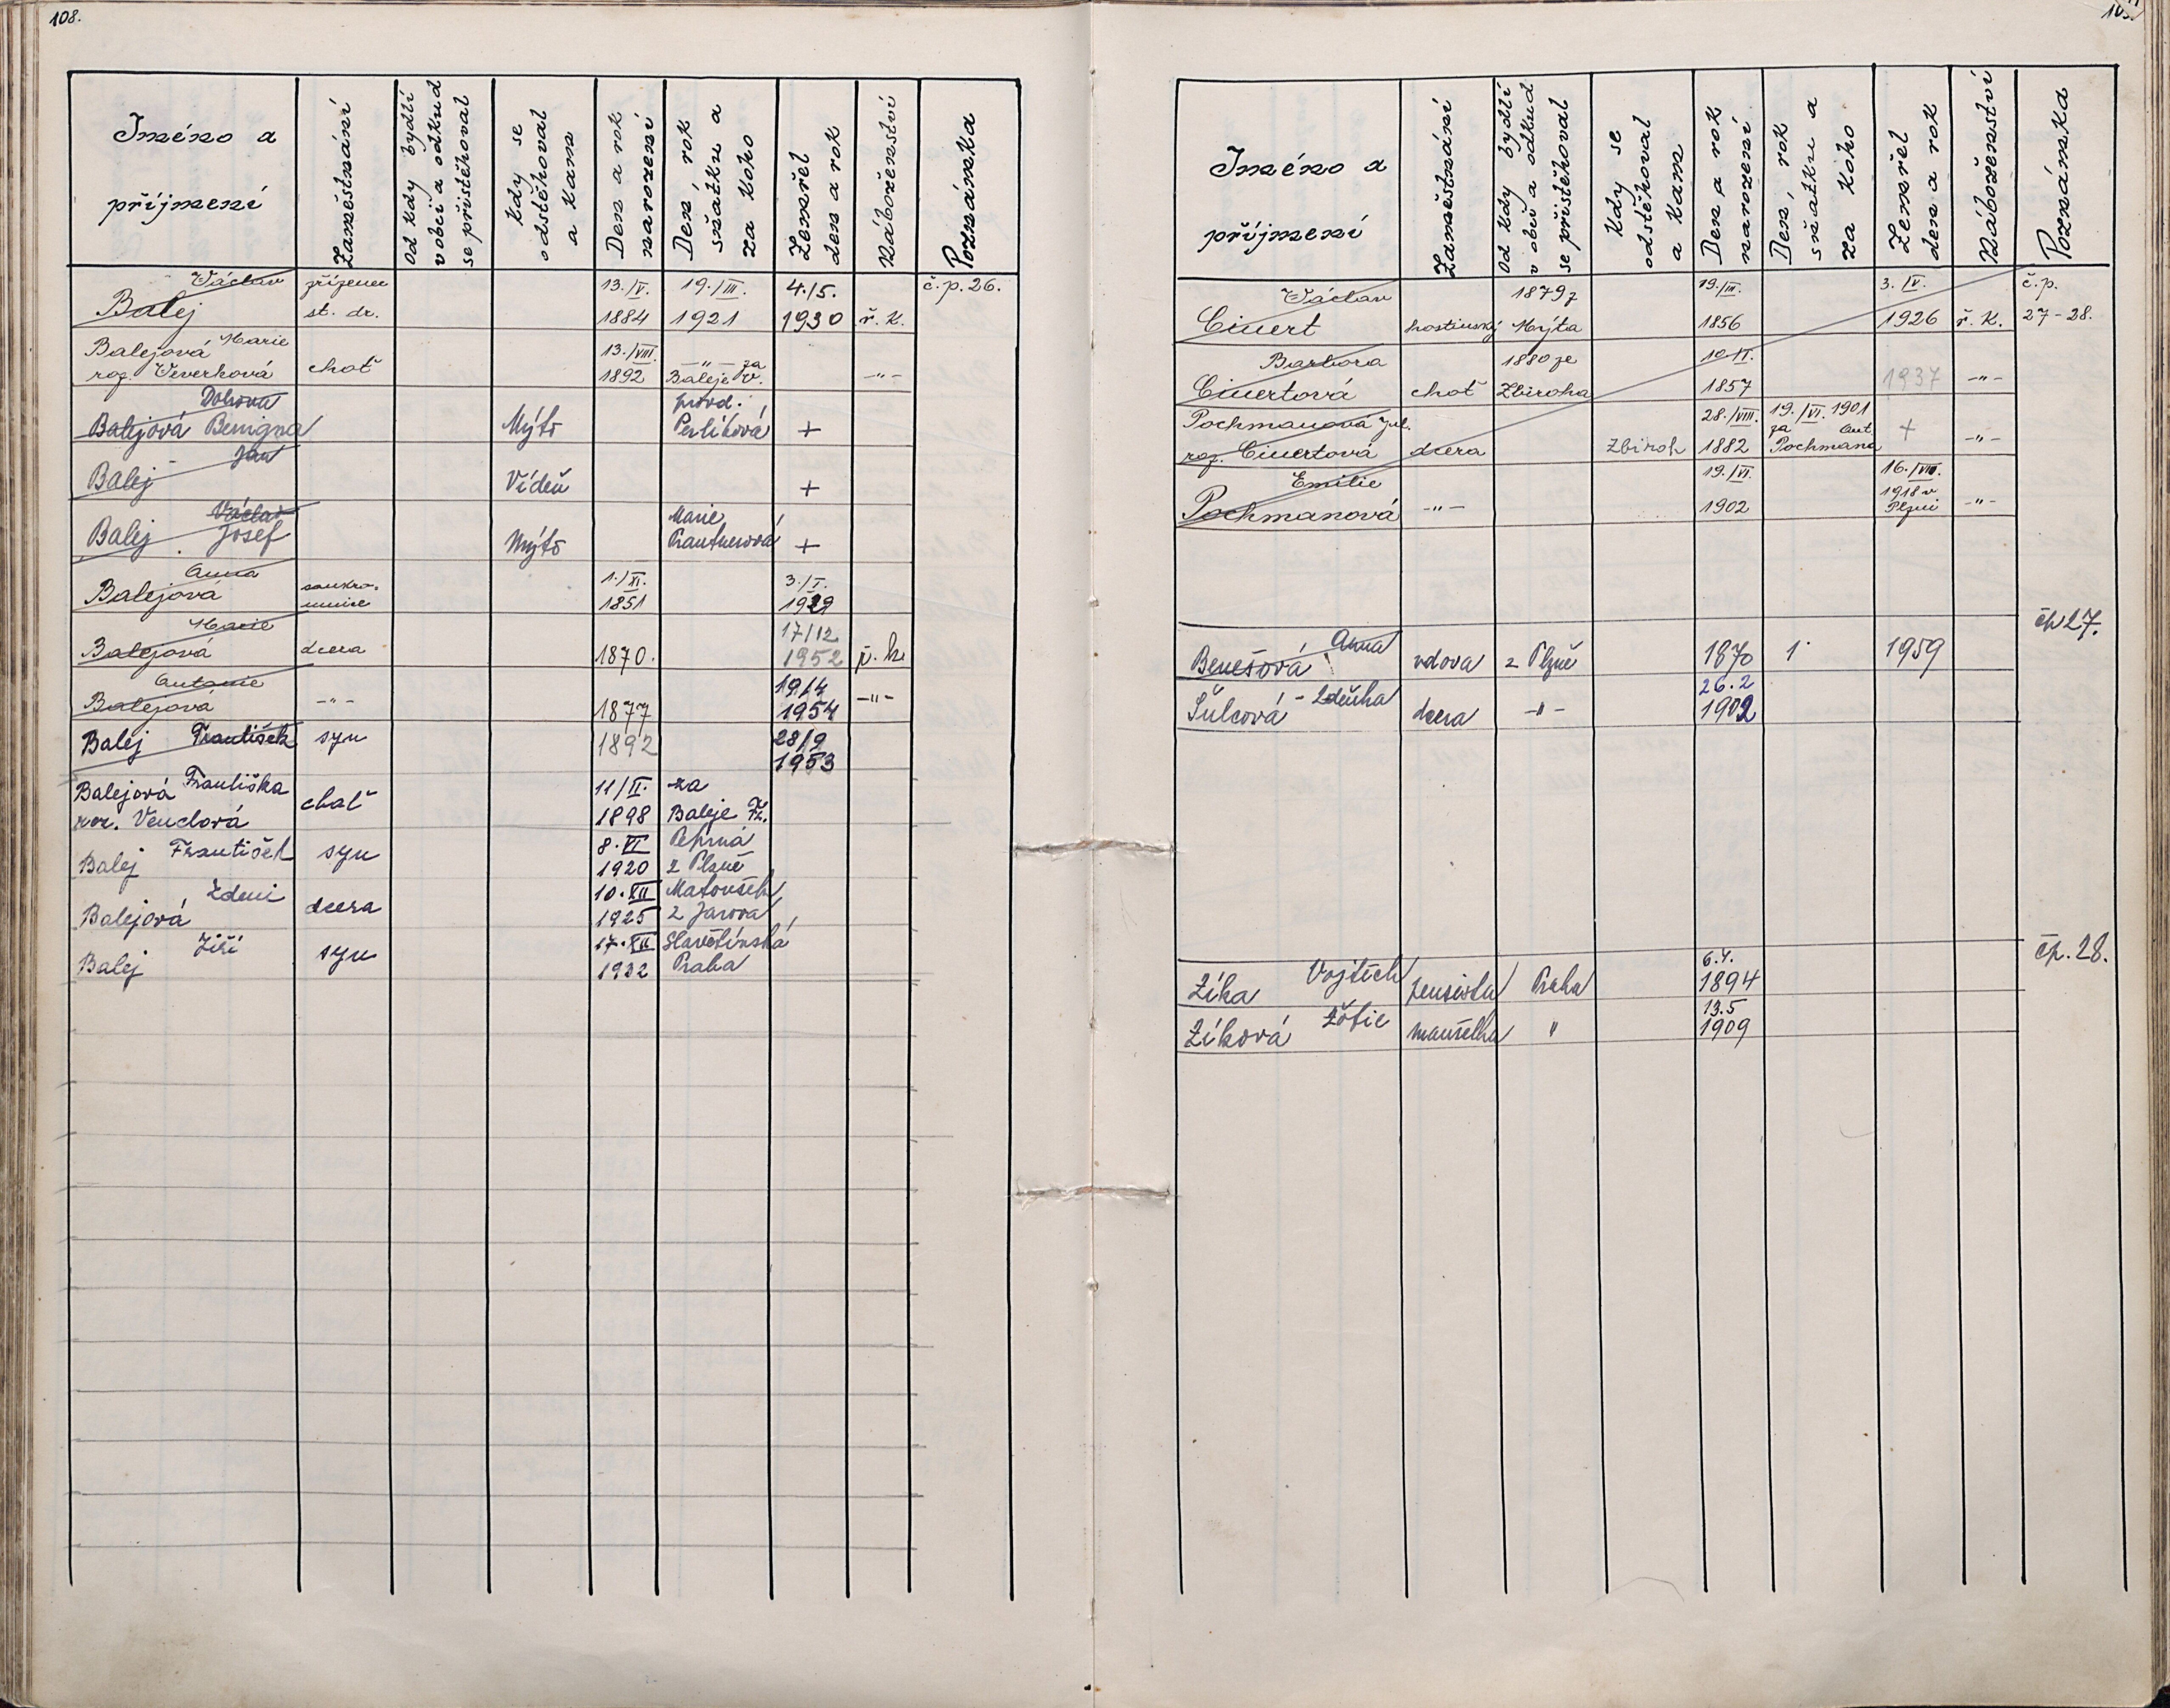 108.
Jméno a příjmení
Zaměstnání
Od kdy bydlí v obci a odkud se přistěhoval
Kdy se odstěhoval a kam
Den a rok narození
Den, rok sňatku a za koho
Zemřel den a rok
Náboženství
Poznámka
Václav zřízenec 13./V. 19./III. 4./5. č. p. 26.
Balej st. dr. 1884 1921 1930 ř. K.
Balejová Marie 13./VIII. -"- za
roz. Veverková choť 1892 Baleje V. -"-
Dohova provd.
Balejová Benigna Mýto Perlíková +
Jan
Balej Vídeň +
Václav Marie
Balej Josef Mýto Prantnerová +
Anna soukro- 1./XI. 3./I.
Balejová mnice 1851 1939
Marie 17/12
Balejová dcera 1870. 1952 ř. k.
Antonie 19/4
Balejová -"- 1877 1954 -"-
Balej František syn 1892 28/9
1953
Balejová Františka choť 11/II. za
roz. Venclová 1898 Baleje Fr.
Balej František syn 8.VI
1920 z Plzně
Zdeni 10.XII Matoušek
Balejová dcera 1925 z Jarova
Jiří 17.XII Slavětínská
Balej syn 1932 Praha
Jméno a příjmení
Zaměstnání
Od kdy bydlí v obci a odkud se přistěhoval
Kdy se odstěhoval a kam
Den a rok narození
Den, rok sňatku a za koho
Zemřel den a rok
Náboženství
Poznámka
Václav 1879 z 19./III. 3. IV. č. p.
Civert hostinský Mýta 1856 1926 ř. K. 27-28.
Barbora 1880 ze
Civertová choť Zbiroha 1857 1937 -"-
Pochmanová Jul. 28./VIII. 19./VI. 1901
roz. Civertová dcera Zbiroh 1882 za Ant. Pochmana + -"-
Emilie 19./VI. 16./VIII.
Pochmanová -"- 1902 1918 v Plzni -"-
čp 27.
Benešová Anna vdova z Plzně 1870 1959
Šulcová - Zdeňka dcera -"- 26.2
1902
čp. 28.
Zíka Vojtěch pensista Praha
1894
Zíková Žofie manželka " 13.5
1909